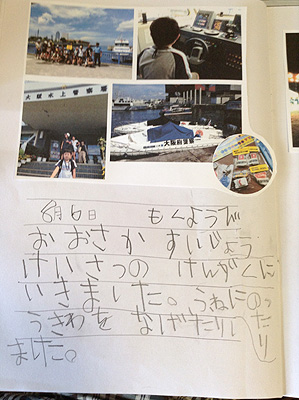 大阪水上警察署
大阪府警察
8月6日 もくようび
おおさか すいじょう
けいさつの けんがくに
いきました。うねにのったり
うきわを なげたりし
ました。